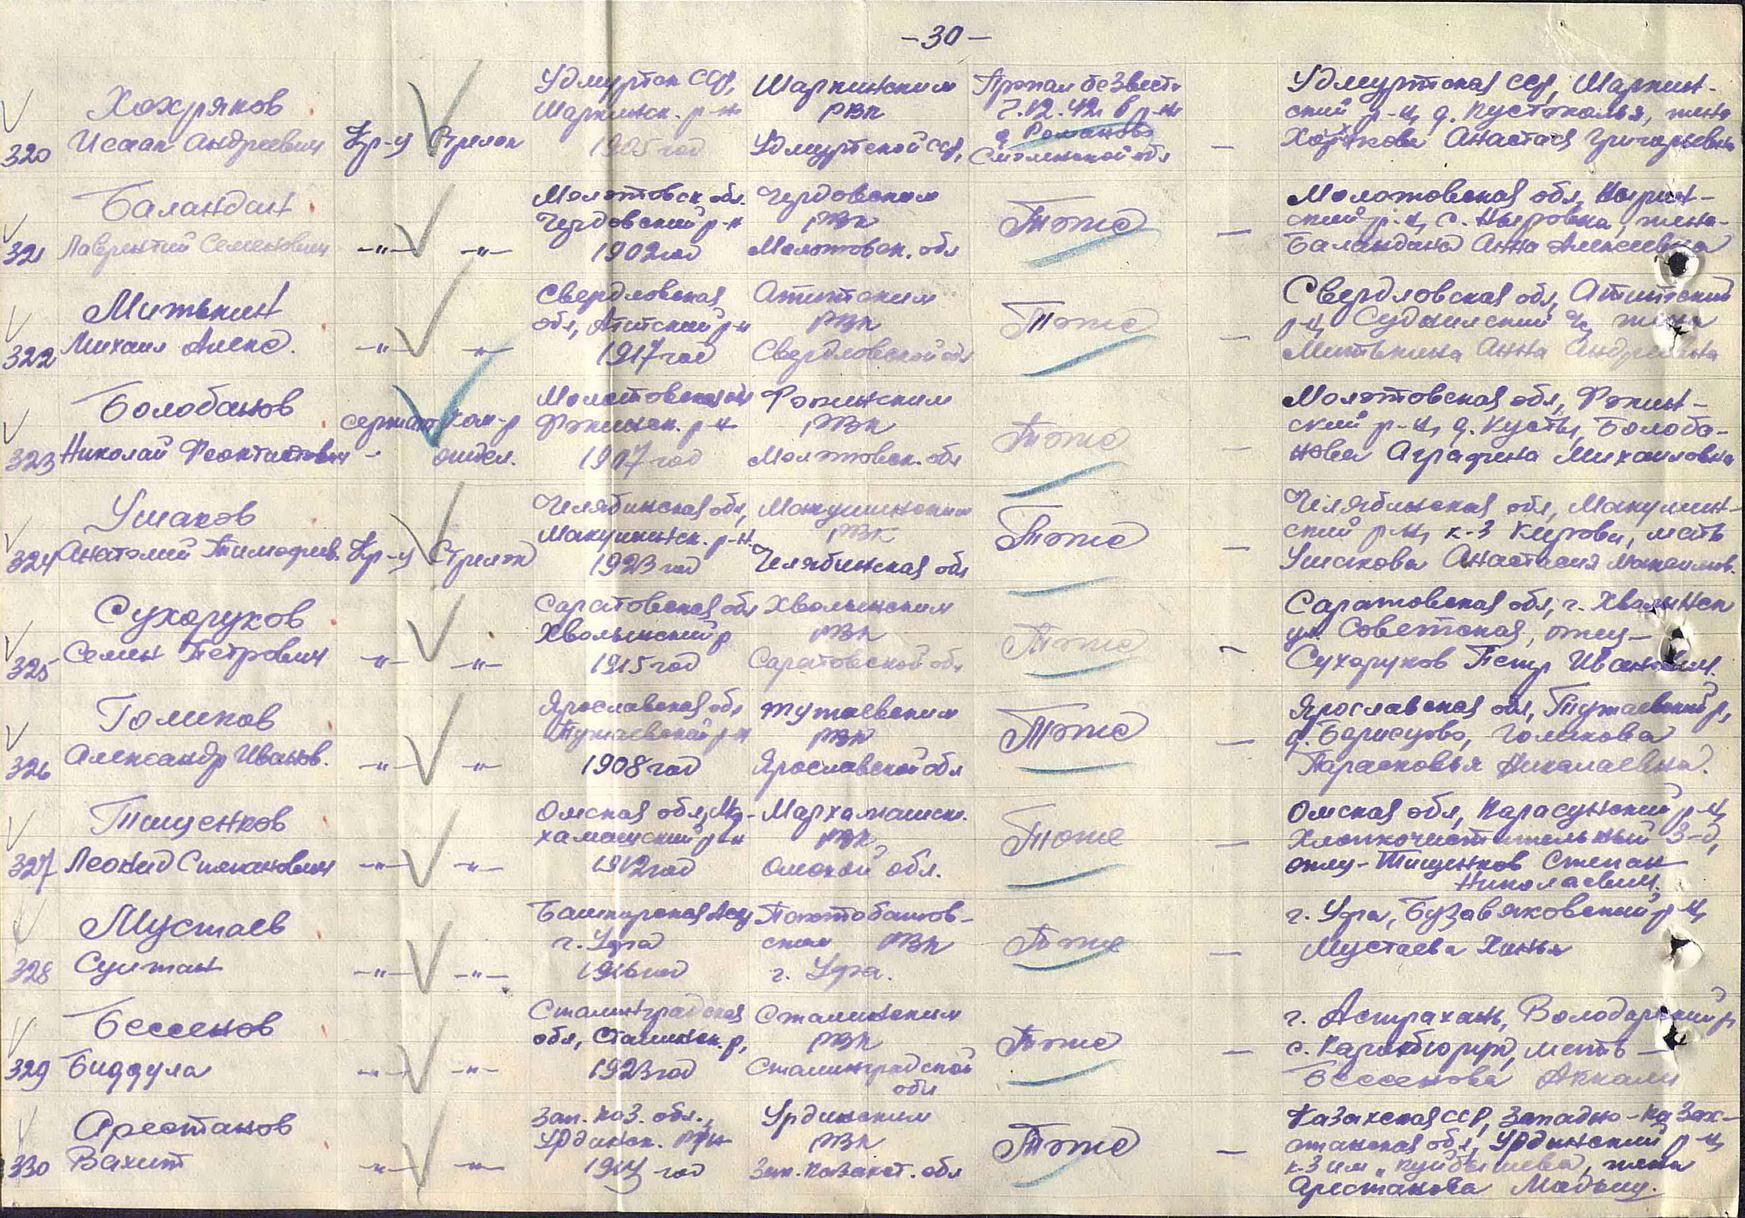 -30-
Хохряков
320 Исаак Андреевич
Кр-ц Стрелок
Удмуртск ССР,
Шаркинск. р-н
1905 год
Шаркинским
РВК
Удмуртской ССР,
Пропал без вести
7.12.42г. в р-не
д Романово
Смоленской обл
—
Удмуртская ССР, Шаркин-
ский р-н, д. Пустополья, жена
Анастас Григорьевна
Баландин
321 Лаврентий Семенович
-"- -"-
Молотовск. обл.
Чердовский р-н
1902 год
Чердовским
РВК
Молотовск. обл
Тоже
—
Молотовская обл,
ский р-н, с. Ныровка, жена-
Баландина Анна Алексеевна
Митькин
322 Михаил Алекс.
-"- -"-
Свердловская
обл, Ачитский р-н
1917 год
Ачитским
РВК
Свердловской обл
Тоже
—
Свердловская обл, Ачитский
р-н, жена
Митькина Анна Андреевна
Болобанов
323 Николай Феоктистович
сержант Ком-р
отдел.
Молотовская обл
Фокинск. р-н
1907 год
Фокинским
РВК
Молотовск. обл
Тоже
—
Молотовская обл, Фокин-
ский р-н, д. Кусты, Болоба-
нова Аграфина Михаиловна
Ушаков
324 Анатолий Тимофеев.
Кр-ц Стрелок
Челябинская обл,
Макушинск. р-н.
1923 год
Макушинским
РВК
Челябинская обл
Тоже
—
Челябинская обл, Макушин-
ский р-н, к-з Кирова, мать
Ушакова Анастасия
Сухоруков
325 Семен Петрович
-"- -"-
Саратовская обл
Хвалынский р
1915 год
Хволынским
РВК
Саратовской обл
Тоже
-
Саратовская обл, г. Хволынск
ул. Советская, отец-
Сухоруков Петр Иванович.
Голиков
326 Александр Иванов.
-"- -"-
Ярославская обл
Тутаевский р-н
1908 год
Тутаевским
РВК
Ярославской обл
Тоже
—
Ярославская обл, Тутаевский р,
д. Борисцово, Голикова
Парасковья Николаевна.
Тищенков
327 Леонид Степанович
-"- -"-
Омская обл,
р-н
1912 год
РВК,
Омской обл.
Тоже
—
Омская обл, Карасунский р-н,
Хлопкочистительный З-д,
отец-Тищенков Степан
Николаевич.
Мустаев
328 Султан
-"- -"-
Башкирская
г. Уфа
1916 год
ским РВК
г. Уфа.
Тоже
—
г. Уфа, р-н,
Мустаева
Бессенов
329 Биддула
-"- -"-
Сталинградская
обл, Сталинск. р,
1923 год
Сталинским
РВК
Сталинградской
обл
Тоже
—
г. Астрахань, Володарский р
с. мать-
Бессенова Аккали
Арестанов
330 Вахит
-"- -"-
Зап. каз. обл.,
Урдинск. р-н
1914 год
Урдинским
РВК
Зап. Казахст. обл
Тоже
—
Казахская ССР, Западно-Казах-
станская обл, Урдинский р-н
к-з им „Куйбышева, жена
Арестанова